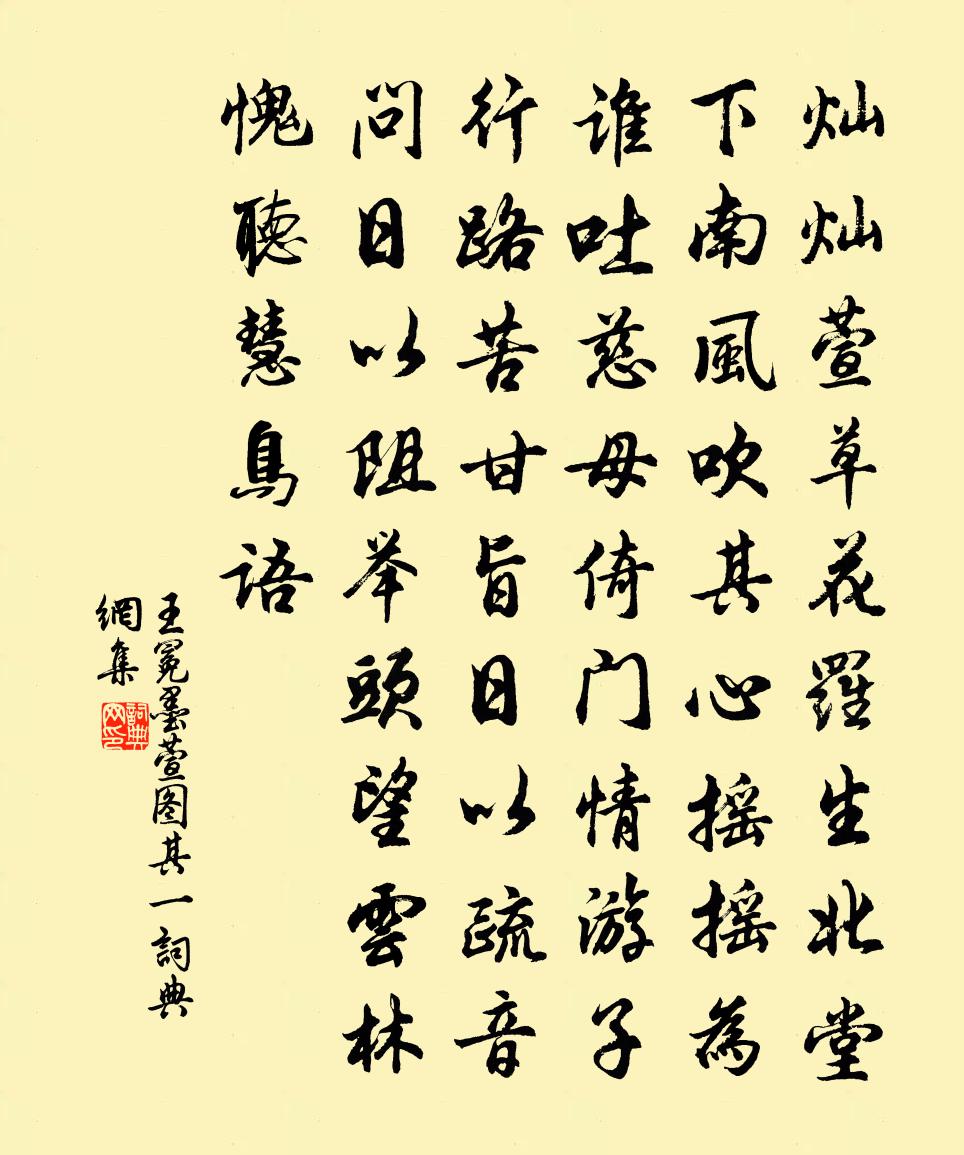 灿灿萱草花羅生北堂
下南風吹其心摇摇為
誰吐慈母倚门情游子
行路苦甘旨日以疏音
问日以阻举頭望雲林
愧聽慧鳥语
王冕墨萱图其一詞典
網集
詞典
网印